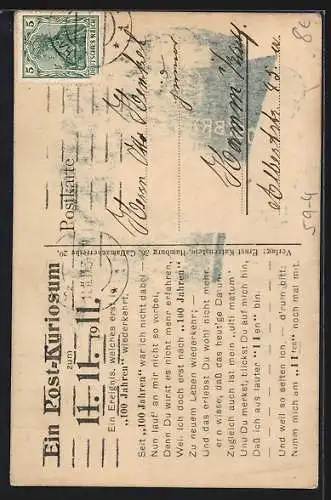 Ein Post-Kuriosum
zum
11. 11. 1911.
Ein Ereignis, welches erst in
„100 Jahren" wiederkehrt.
Seit „100 Jahren" war ich nicht dabei —
Nun lauf' an mir nicht so vorbei,
Denn Du wirst es nicht mehr erfahren
Weil ich doch erst nach „100 Jahren"
Zu neuem Leben wiederkehr;
Und das erlebst Du wohl nicht mehr.
wisse, daß das heut'ge Datum
Zugleich auch ist mein „ultimatum"
Und Du merkst, blickst Du auf mich hin,
Daß ich aus lauter "11en" bin.
Und weil so selten ich — d'rum bitt:
Nimm mich am „11ten" noch mal mit.
Verlag: Ernst Kaltenstein, Hamburg 36,
Postkarte
5 DEUTSCHES REICH 5
Herrn
Hamm i/Westf.
8€
59-4